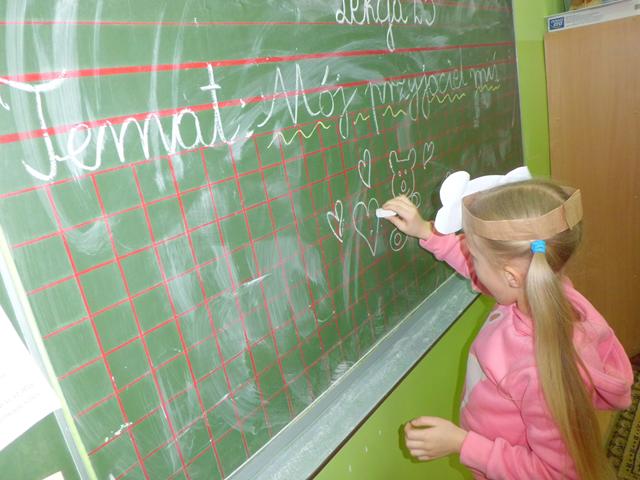 Lekcja 23
Temat: Mój przyjaciel miś